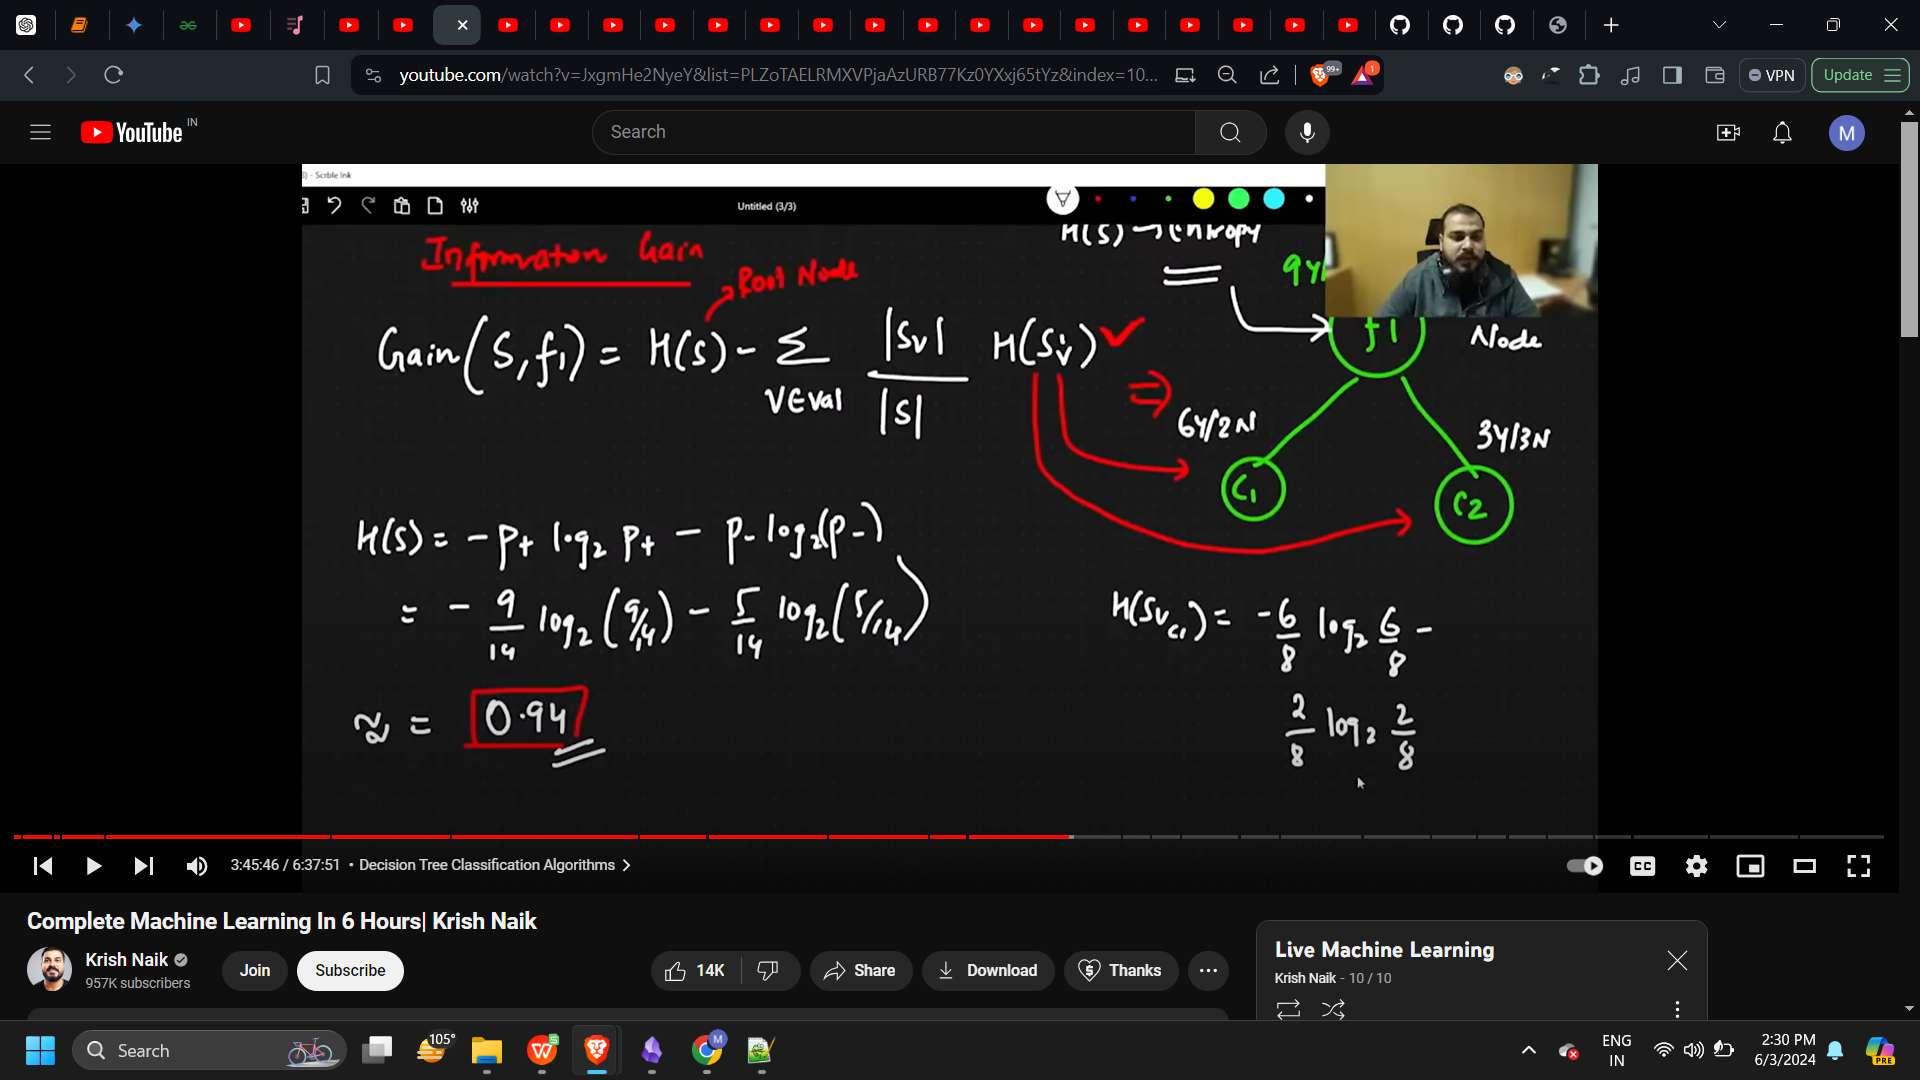 youtube.com/watch?v=JxgmHe2NyeY&list=PLZoTAELRMXVPjaAzURB77Kz0YXxj65tYz&index=10...
99+
1
VPN
Update
YouTube IN
Search
M
Scrble Ink
Untitled (3/3)
Information Gain
Root Node
H(S) → Entropy
9Y/
Gain(S,f1) = H(S) - Σ |Sv| H(Sv)
v∈val |S|
f1 Node
6Y/2N
3Y/3N
C1
C2
H(S) = - P+ log2 P+ - P- log2(P-)
= - 9/14 log2 (9/14) - 5/14 log2 (5/14)
≈ = 0.94
H(Svc1) = -6/8 log2 6/8 -
2/8 log2 2/8
3:45:46 / 6:37:51 • Decision Tree Classification Algorithms
CC
Complete Machine Learning In 6 Hours| Krish Naik
Krish Naik
957K subscribers
Join
Subscribe
14K
Share
Download
Thanks
Live Machine Learning
Krish Naik - 10 / 10
Search
105°
ENG
IN
2:30 PM
6/3/2024
PRE